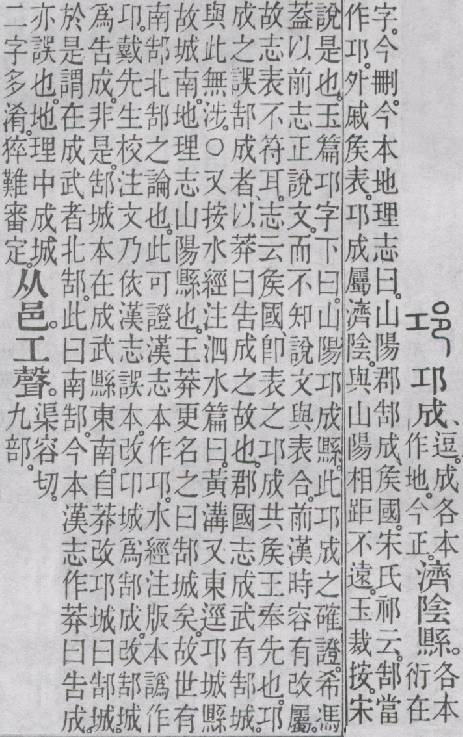 邛成、逗。成各本
作地。今正。濟陰縣。各本
衍在
字。今刪。今本地理志曰。山陽郡郜成矦國。宋氏祁云。郜當
作邛。外戚矦表。邛成屬濟陰。與山陽相距不遠。玉裁按。宋
說是也。玉篇邛字下曰。山陽邛成縣。此邛成之確證。希馮
蓋以前志正說文。而不知說文與表合。前漢時容有改屬。
故志表不符耳。志云矦國、卽表之邛成共矦王奉先也。邛
成之誤郜成者、以莽曰告成之故也。郡國志成武有郜城。
與此無涉。○又按水經注泗水篇曰。黃溝又東逕邛城縣
故城南。地理志山陽縣也。王莽更名之曰郜城矣。故世有
南郜北郜之論也。此可證漢志本作邛。水經注版本譌作
卬。戴先生校注文乃依漢志誤本。改卬城爲郜成。改郜城
爲告成。非是。郜城本在成武縣東南。自莽改邛城曰郜城。
於是謂在成武者北郜。此曰南郜。今本漢志作莽曰告成。
亦誤也。地理中成城
二字多淆。猝難審定。从邑。工聲。渠容切。
九部。